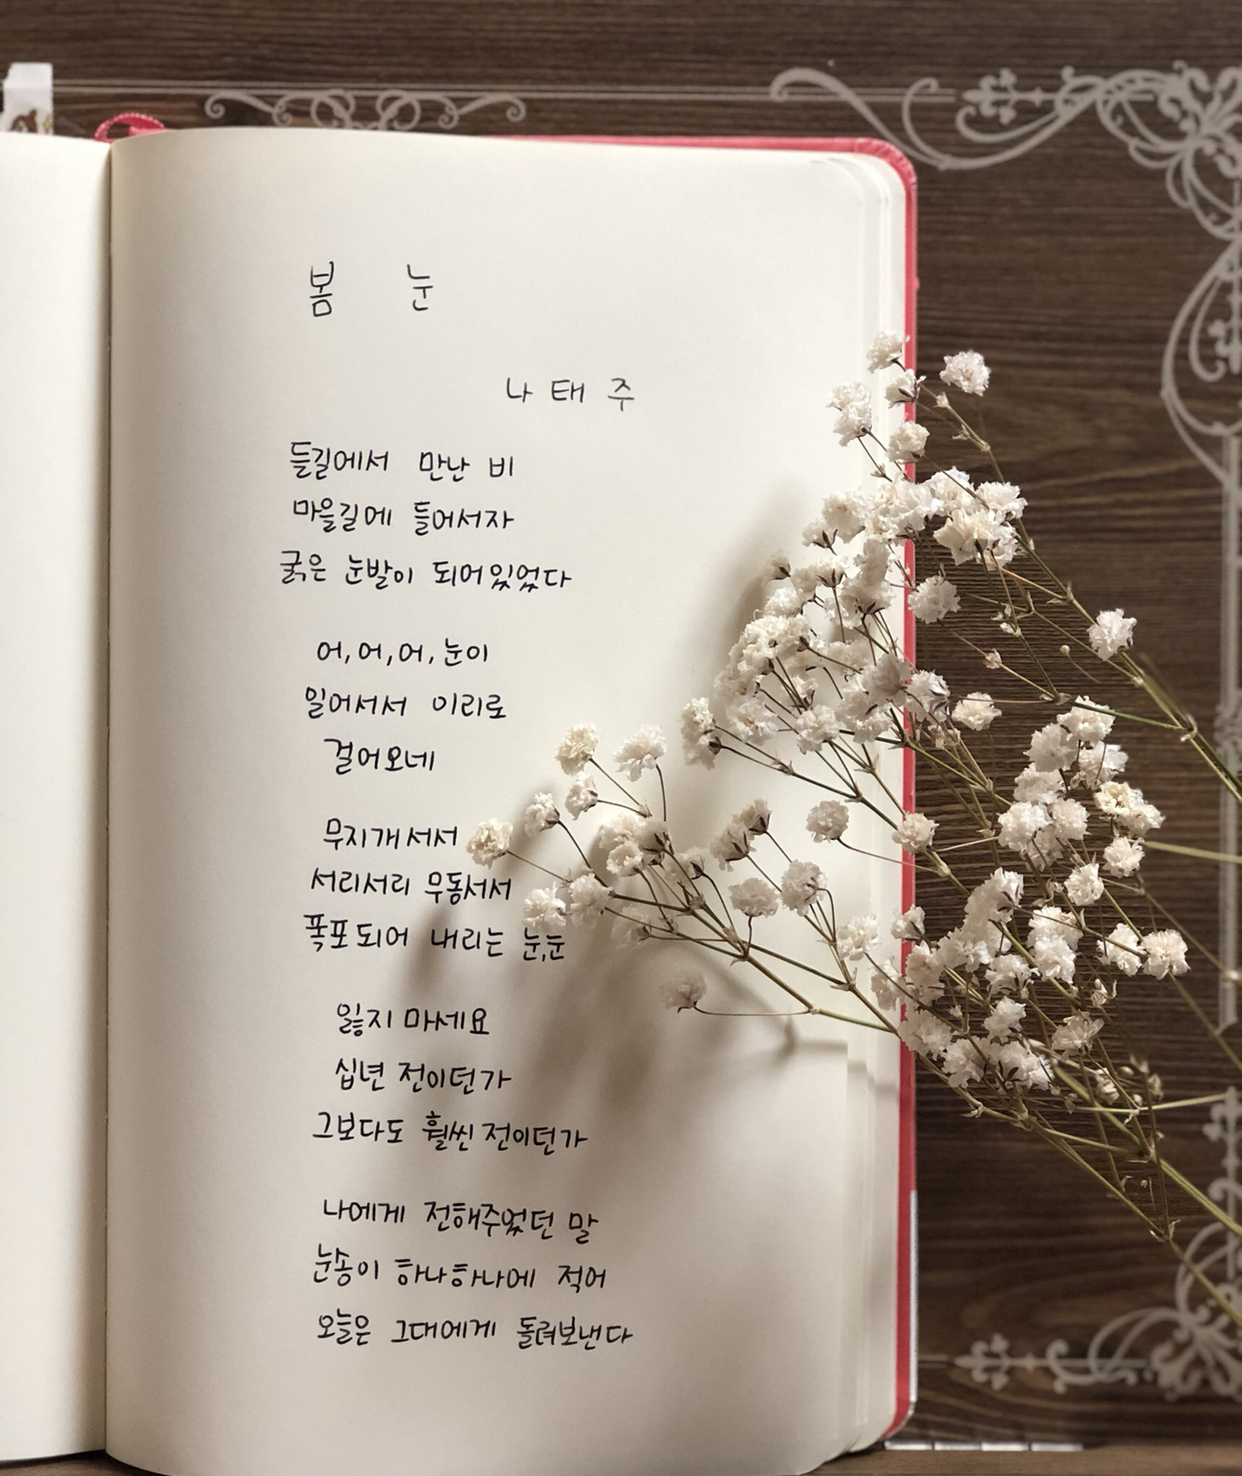 봄 눈
나 태 주
들길에서 만난 비
마을길에 들어서자
굵은 눈발이 되어있었다
어, 어, 어, 눈이
일어서서 이리로
걸어오네
무지개 서서
서리서리 무동서서
폭포되어 내리는 눈, 눈
잃지 마세요
십년 전이던가
그보다도 훨씬 전이던가
나에게 전해주었던 말
눈송이 하나하나에 적어
오늘은 그대에게 돌려보낸다